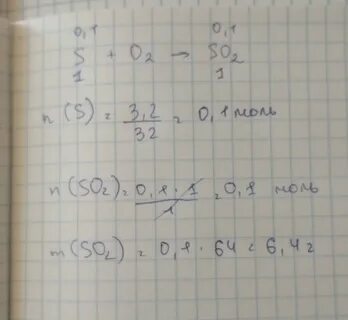 0,1 0,1
S + O2 → SO2
1 1
n (S) = 3,2/32 = 0,1 моль
n (SO2) = 0,1 · 1/1 = 0,1 моль
m (SO2) = 0,1 · 64 = 6,4 г